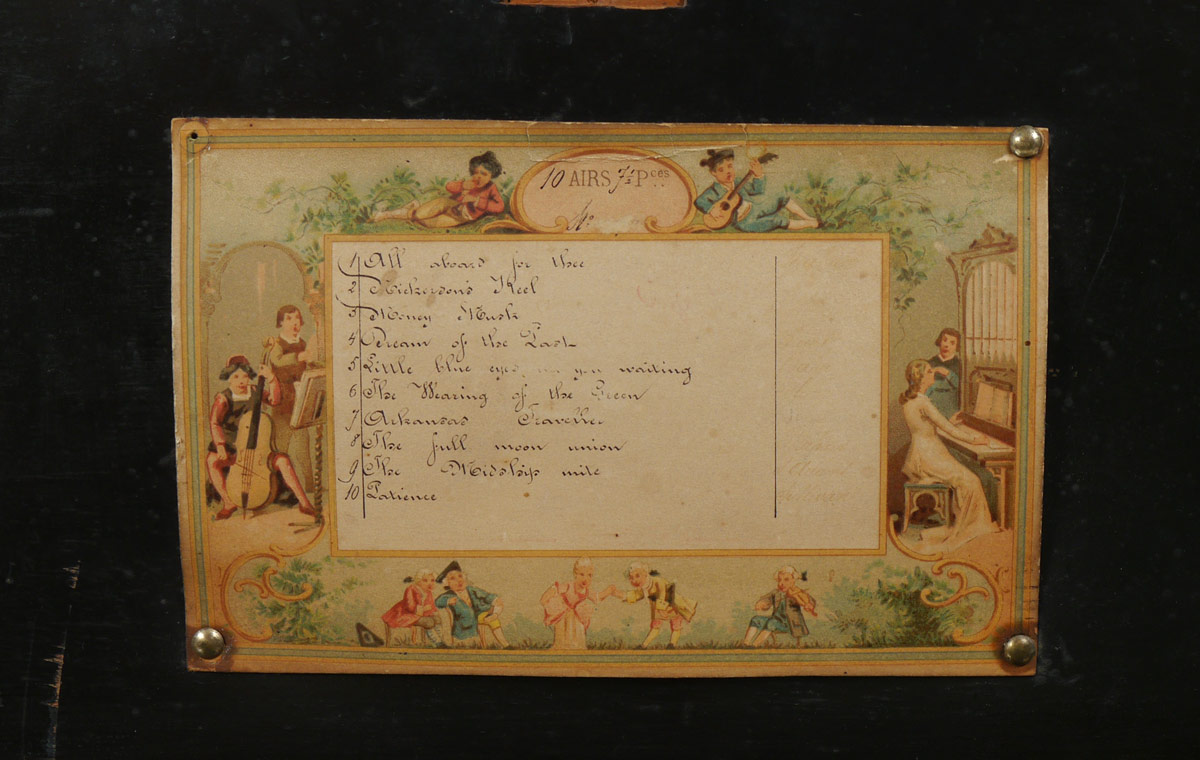 10 AIRS 7½ Pces
No
1 All aboard for thee
2 Nickerson's Reel
3 Money Musk
4 Dream of the Past
5 Little blue eyes you waiting
6 The Wearing of the Green
7 Arkansas Traveller
8 The full moon union
9 The Midship mite
10 Patience